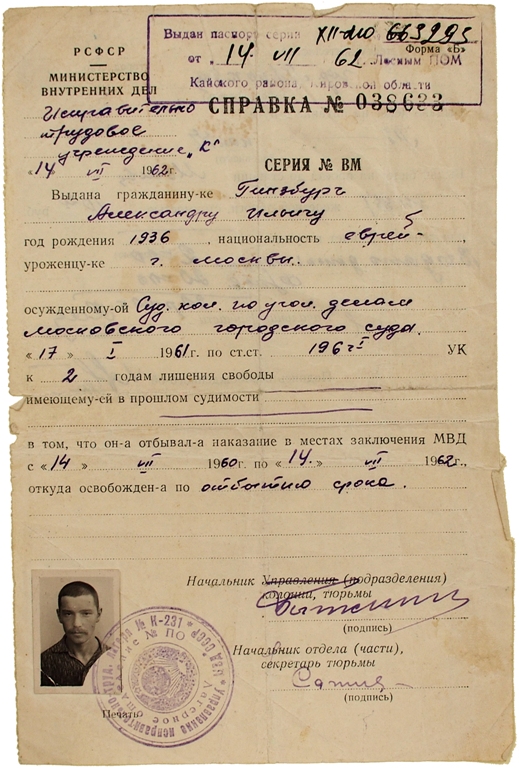 Выдан паспорт серия XII-МЮ 663295
от „14„ VII 62 Лесным ПОМ
Кайского района, Кировской области
Форма «Б»
РСФСР
МИНИСТЕРСТВО
ВНУТРЕННИХ ДЕЛ
Исправительно
трудовое
учреждение „К"
«14» VII 1962г.
СПРАВКА № 038633
СЕРИЯ № ВМ
Выдана гражданину-ке Гинзбург
Александру Ильичу
год рождения 1936, национальность еврей,
уроженцу-ке г. Москвы.
осужденному-ой Суд. кол. по угол. делам
Московского городского суда.
«17» I 1961 г. по ст.ст. 196 ч I УК
к 2 годам лишения свободы
имеющему-ей в прошлом судимости
в том, что он-а отбывал-а наказание в местах заключения МВД
с «14» VII 1960 г. по «14.» VII 1962 г.,
откуда освобожден-а по отбытию срока.
Начальник Управления (подразделения)
колонии, тюрьмы
(подпись)
Начальник отдела (части),
секретарь тюрьмы
(подпись)
Печать
№ К-231
Управление
СССР
№ ПО